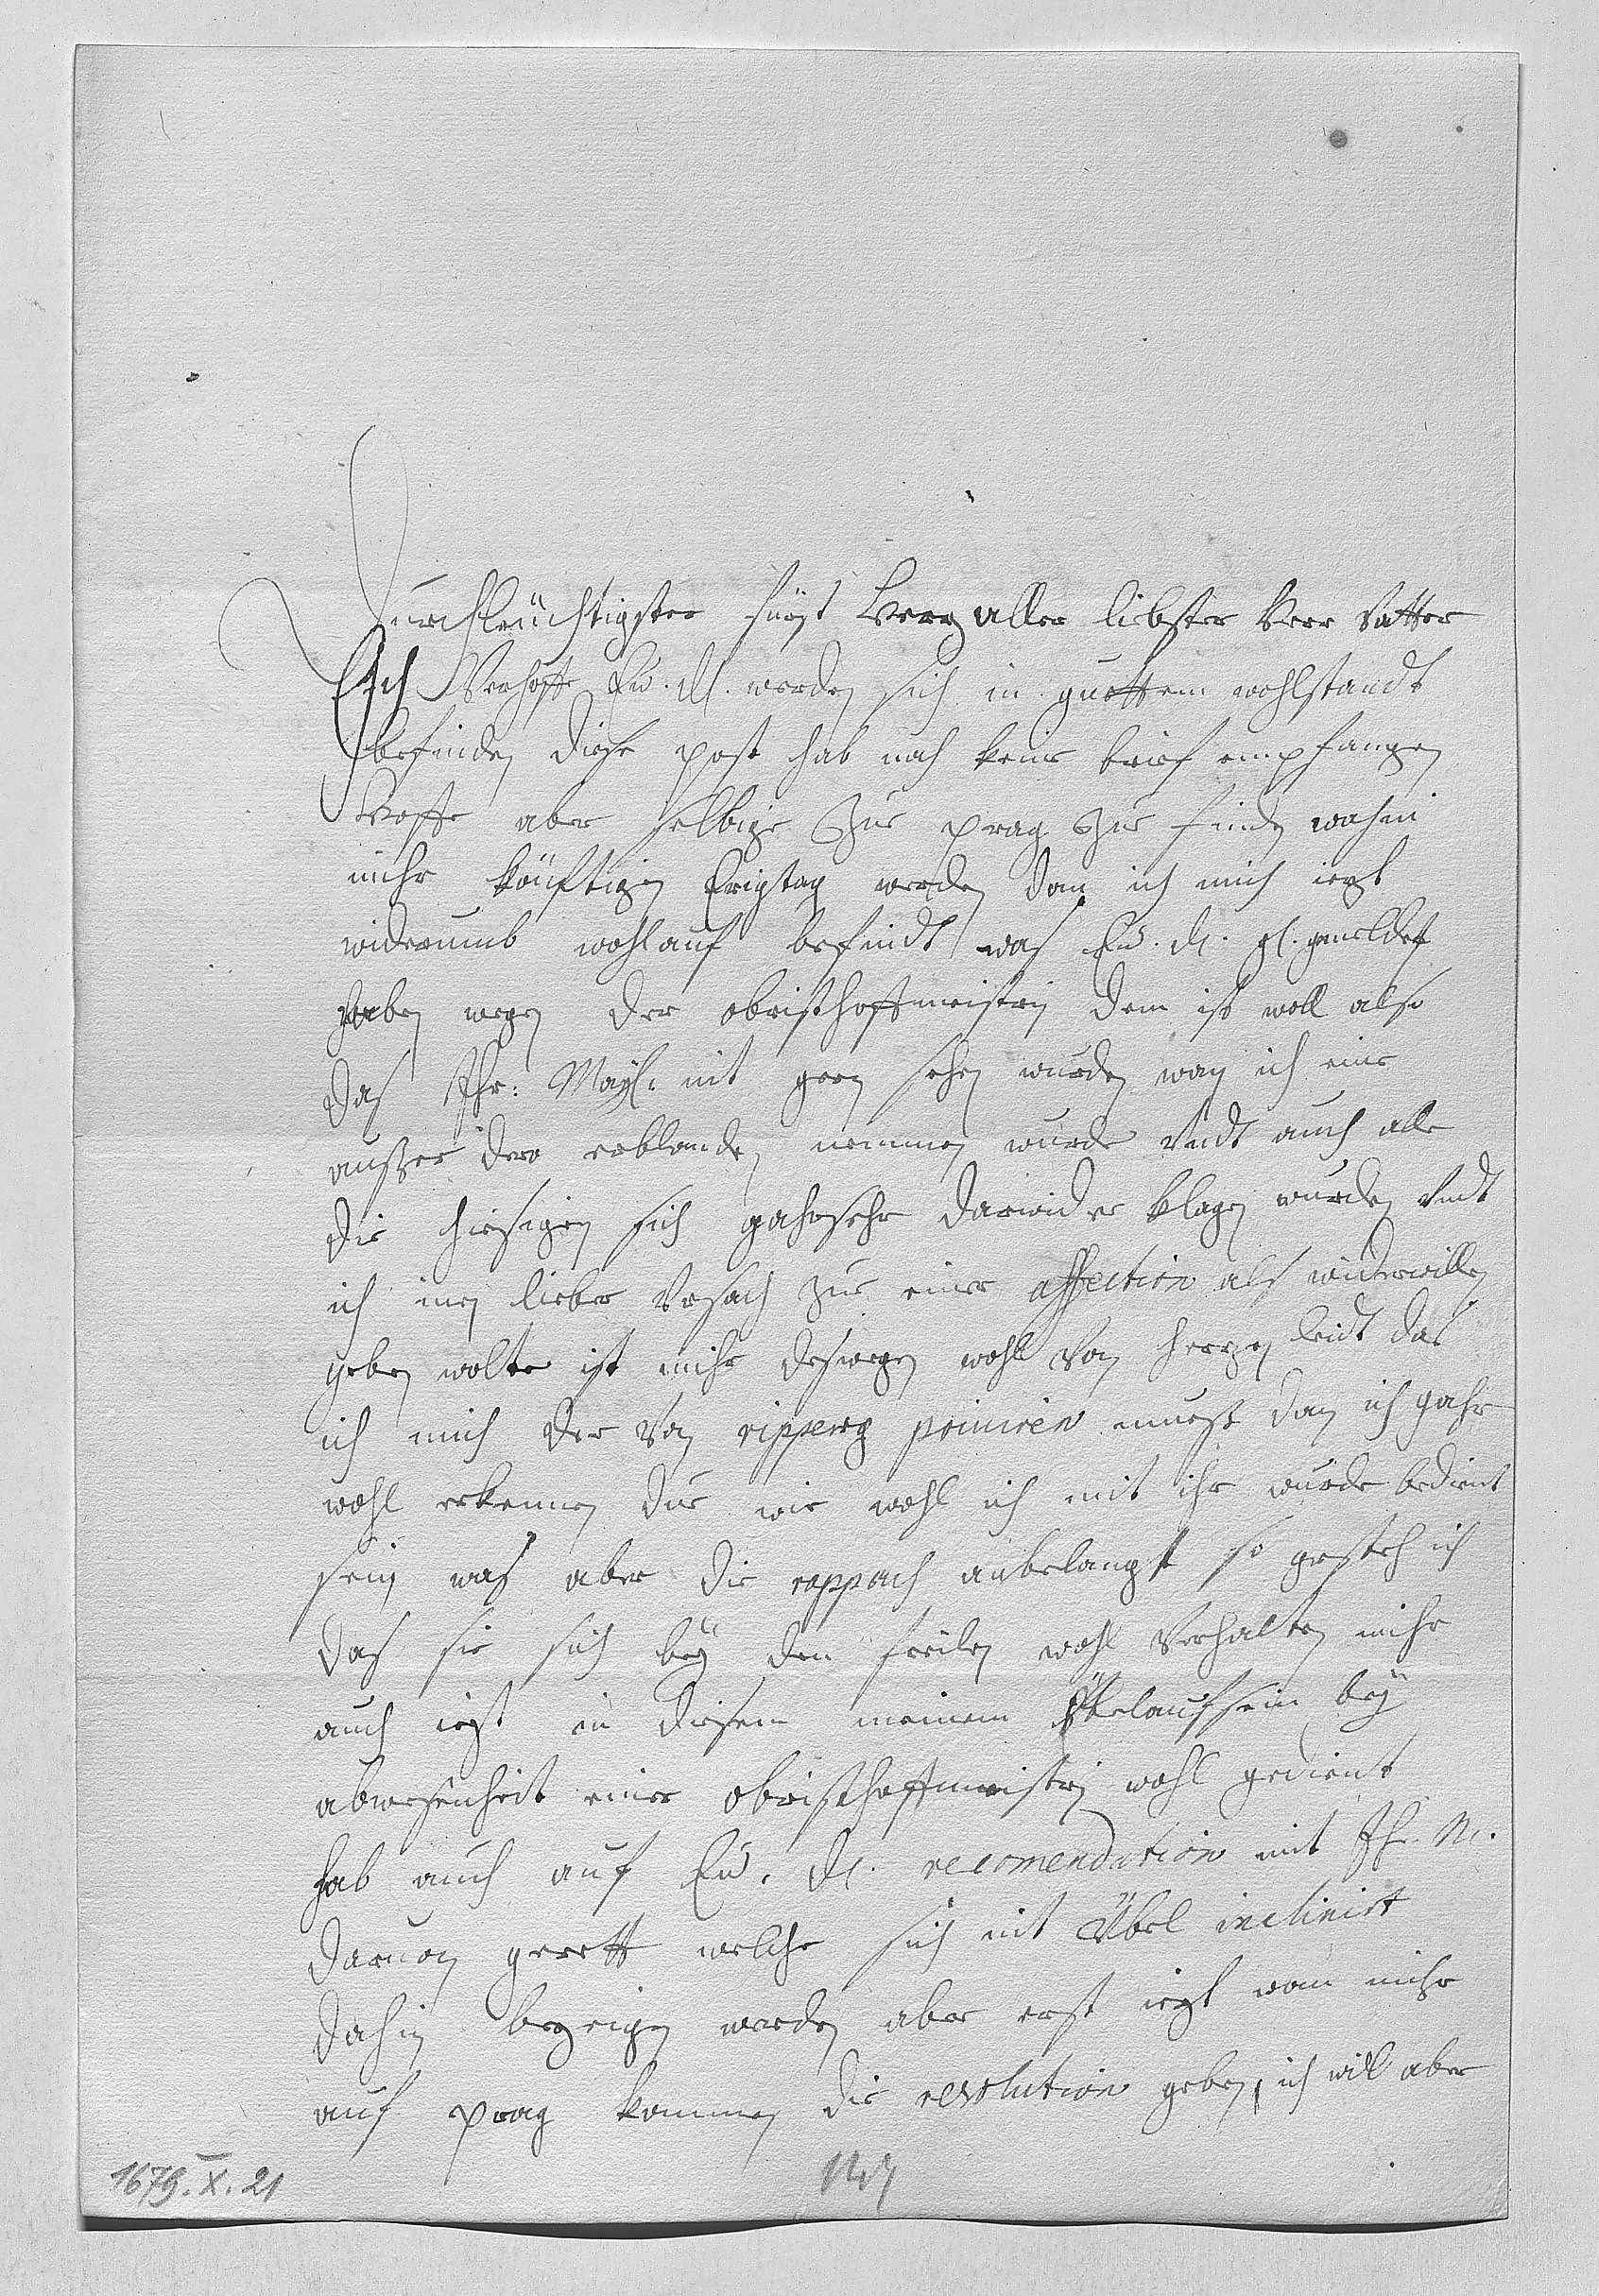 Durchleüchtigster Fürst Herz aller liebster Herr Vatter
Ich Verhoffe Eu. Dl. werden sich in guettem wohlstandt
befinden diese post hab noch keine brief empfangen
Hoffe aber selbige Zue prag Zue finden wohin
mihr künfftigen Erigtag werden dan ich mich iezt
widerumb wohlauf befindt was Eu. Dl. gl. gemeldet
haben wegen der obristhoffmeistrin dem ist woll also
das Ihr: Mayst: nit gern sehen wurden wan ich eine
ausser dero erblanden nemmen wurde undt auch alle
die hiesigen sich gahrsehr darwider klagen wurden undt
ich inen lieber Ursach zue einer affection als widerwillen
geben wolte ist mihr deswegen wohl Von herzen leidt das
ich mich der Von ripperg priuiren muest dan ich gahr
wohl erkennen due wie wohl ich mit ihr wurde bedient
sein was aber die rappach anbelangt so gesteh ich
das sie sich bey den freilen wohl Verhalten mihr
auch iezt in diesem meinem Übelaufsein bey
abwesenheit einer obristhoffmeistrin wohl gedient
hab auch auf Eu. Dl. recomendation mit Ih. M.
daruon gerett welche sich nit Übel inclinirt
dahin bezeigen werden aber erst iezt wan mihr
auf prag kommen die resolution geben, ich will aber
1679. X. 21